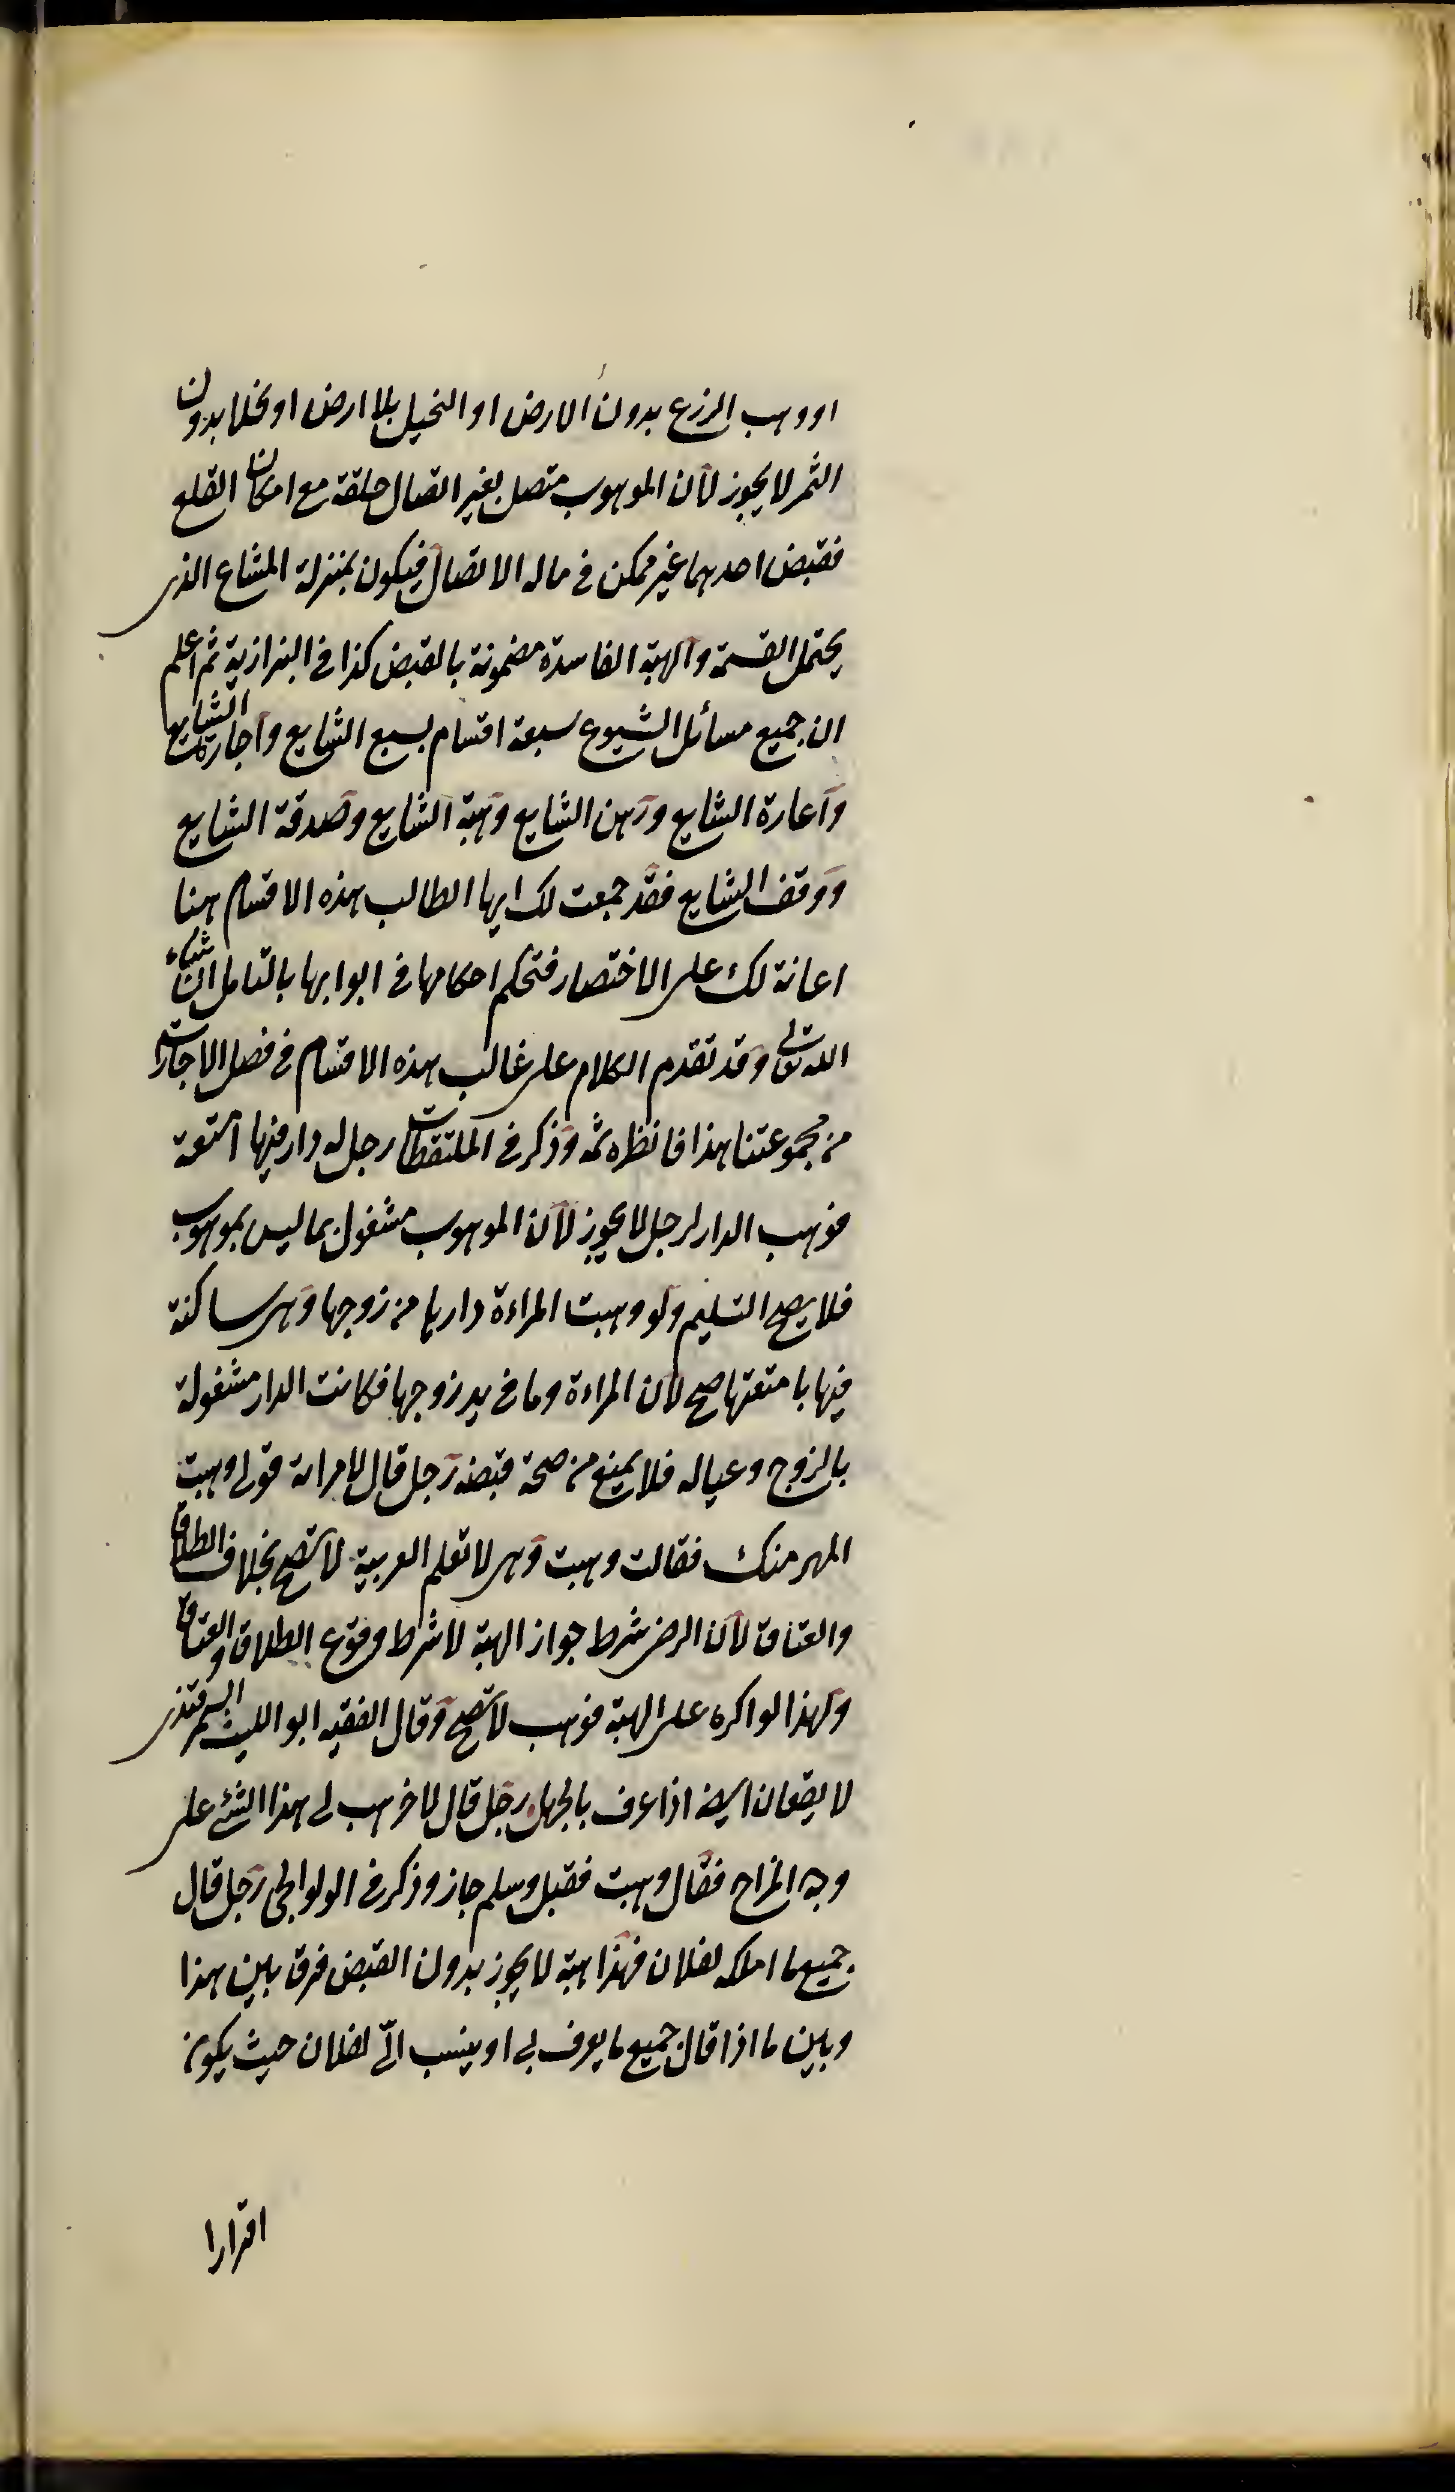 او وهب الزرع بدون الارض او النخيل بلا ارض او نخلا بدون
الثمر لا يجوز لأن الموهوب متصل بغير اتصال خلقة مع امكان القلع
فقبض احدهما غير ممكن في حاله الاتصال فيكون بمنزلة المشاع الذى
يحتمل القسمة والهبة الفاسدة مضمونة بالقبض كذا في البزازية ثم اعلم
ان جميع مسائل الشيوع سبعة اقسام بيع الشايع واجارة الشايع
واعارة الشايع ورهن الشايع وهبة الشايع وصدقة الشايع
ووقف الشايع فقد جمعت لك ايها الطالب هذه الاقسام هنا
اعانة لك على الاختصار فتحكم احكامها في ابوابها بالتامل ان شاء
الله تعالى وقد تقدم الكلام على غالب هذه الاقسام في فصل الاجارات
من مجموعتنا هذا فانظره ثمه وذكر في الملتقطات رجل له دار فيها امتعة
فوهب الدار لرجل لا يجوز لأن الموهوب مشغول بما ليس بموهوب
فلا يصح التسليم ولو وهبت المراءة دارها من زوجها وهى ساكنة
فيها بامتعتها صح لأن المراءة وما في يد زوجها فكانت الدار مشغولة
بالزوج وعياله فلا يمنع من صحة قبضه رجل قال لامراته قولى وهبت
المهر منك فقالت وهبت وهى لا تعلم العربية لا تصح بخلاف الطلاق
والعتاق لأن الرضى شرط جواز الهبة لا شرط وقوع الطلاق والعتاق
ولهذا لو اكره على الهبة فوهب لا تصح وقال الفقيه ابو الليث السمرقندى
لا يقعان ايضا اذا عرف بالجهل رجل قال لاخر هب لى هذا الشئ على
وجه المزاح فقال وهبت فقبل وسلم جاز وذكر في الولوالجى رجل قال
جميع ما املكه لفلان فهذا هبة لا يجوز بدون القبض فرق بين هذا
وبين ما اذا قال جميع ما يعرف بى او ينسب الىّ لفلان حيث يكون
اقرارا